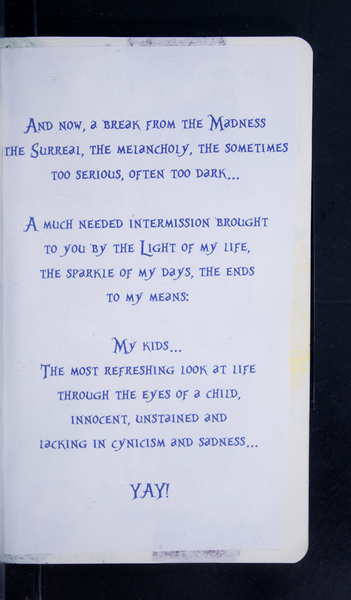 And now, a break from the Madness
the Surreal, the melancholy, the sometimes
too serious, often too dark...
A much needed intermission brought
to you by the Light of my life,
the sparkle of my days, the ends
to my means:
My kids...
The most refreshing look at life
through the eyes of a child,
innocent, unstained and
lacking in cynicism and sadness...
YAY!